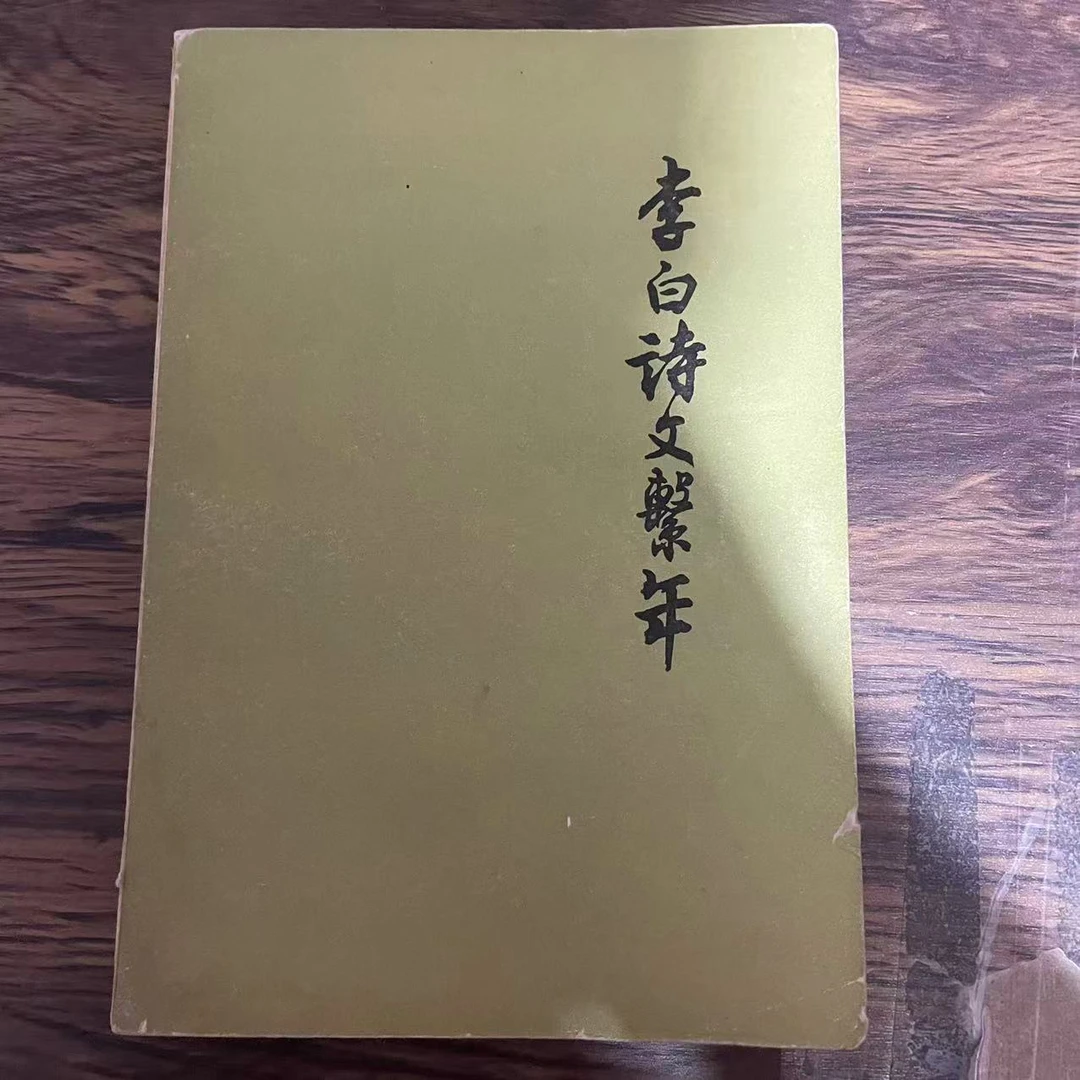 李白詩文繫年